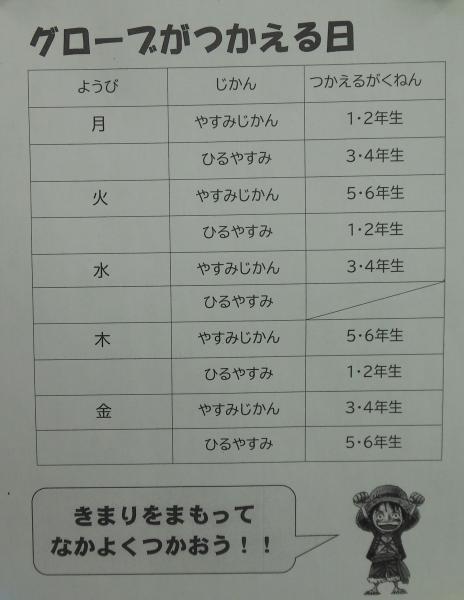 グローブがつかえる日
ようび じかん つかえるがくねん
月 やすみじかん 1・2年生
ひるやすみ 3・4年生
火 やすみじかん 5・6年生
ひるやすみ 1・2年生
水 やすみじかん 3・4年生
ひるやすみ
木 やすみじかん 5・6年生
ひるやすみ 1・2年生
金 やすみじかん 3・4年生
ひるやすみ 5・6年生
きまりをまもって
なかよくつかおう！！